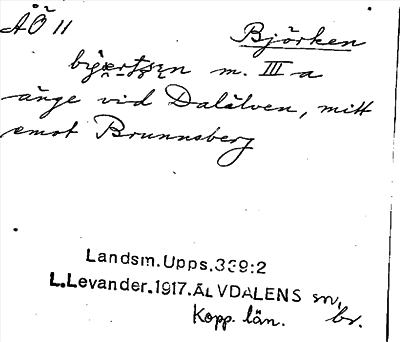 ÄÖ 11
Björken
m. III a
änge vid Dalälven, mitt
emot Brunnsberg
Landsm. Upps. 339:2
L. Levander. 1917. ÄLVDALENS sn, br.
Kopp. län.